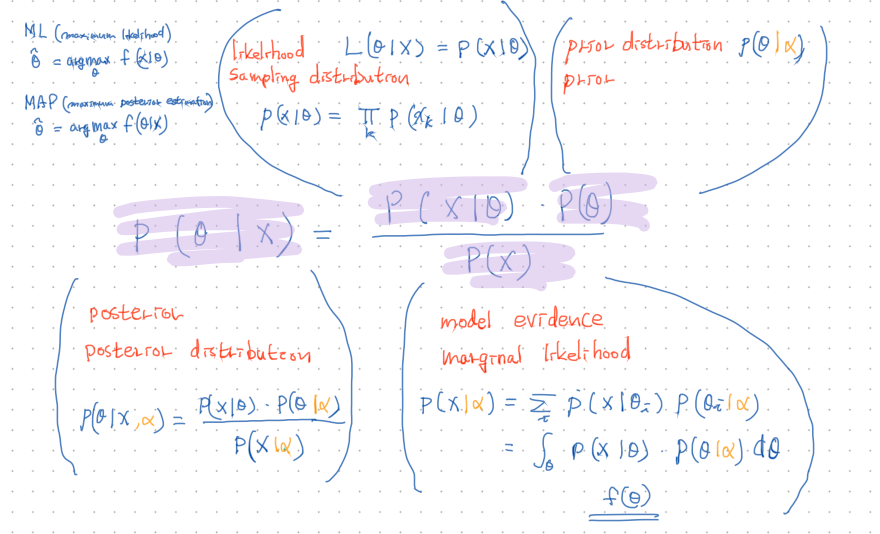 ML (maximum likelihood)
θ̂ = argmax_θ f(x|θ)
MAP (maximum posterior estimation)
θ̂ = argmax_θ f(θ|x)
likelihood L(θ|X) = P(X|θ)
sampling distribution
p(x|θ) = ∏_k P(x_k|θ)
prior distribution p(θ|α)
prior
P(θ|X) = P(X|θ) · P(θ) / P(X)
posterior
posterior distribution
P(θ|X,α) = P(X|θ) · P(θ|α) / P(X|α)
model evidence
marginal likelihood
P(X|α) = Σ_i P(X|θ_i) P(θ_i|α)
= ∫_θ P(X|θ) · P(θ|α) dθ
f(θ)